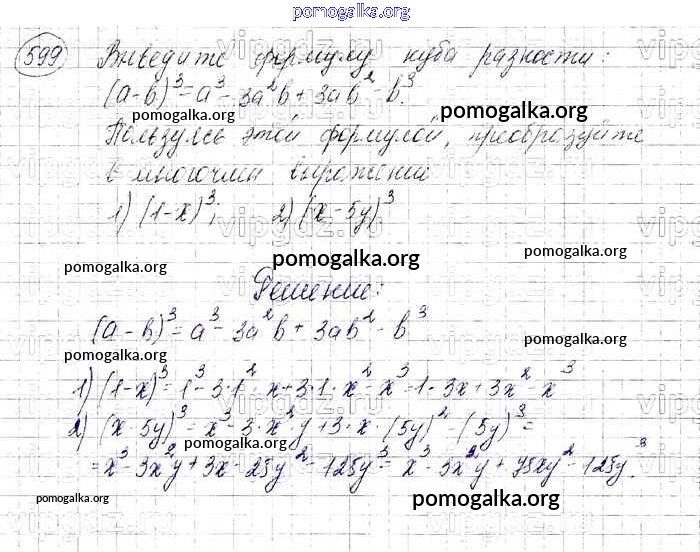 pomogalka.org
599 Выведите формулу куба разности:
(a-b)³ = a³ - 3a²b + 3ab² - b³.
pomogalka.org
Пользуясь этой формулой, преобразуйте
в многочлен выражение
1) (1-x)³; 2) (x-5y)³
pomogalka.org
pomogalka.org
pomogalka.org
Решение:
(a-b)³ = a³ - 3a²b + 3ab² - b³
pomogalka.org
pomogalka.org
1) (1-x)³ = 1³ - 3·1²·x + 3·1·x² - x³ = 1 - 3x + 3x² - x³
2) (x-5y)³ = x³ - 3·x²y + 3·x·(5y)² - (5y)³ =
pomogalka.org
= x³ - 3x²y + 3x·25y² - 125y³ = x³ - 3x²y + 75xy² - 125y³.
pomogalka.org
pomogalka.org